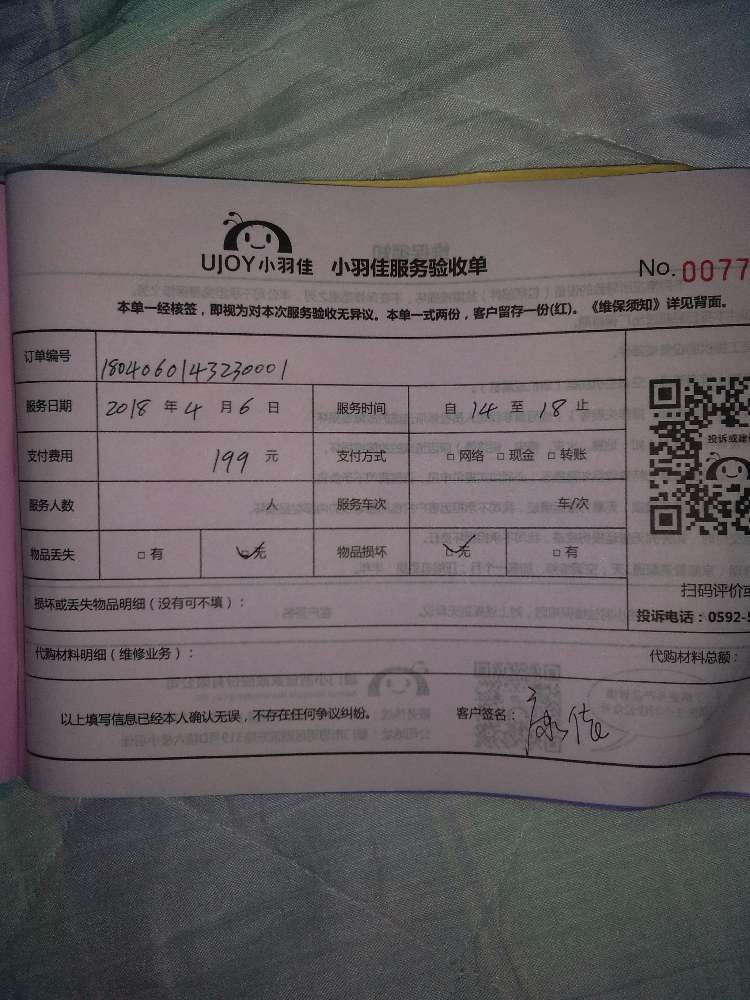 UJOY小羽佳 小羽佳服务验收单 No. 0077
本单一经核签，即视为对本次服务验收无异议。本单一式两份，客户留存一份(红)。《维保须知》详见背面。
订单编号 1804060143230001
服务日期 2018 年 4 月 6 日 服务时间 自 14 至 18 止
支付费用 199 元 支付方式 □ 网络 □ 现金 □ 转账
投诉或建
服务人数 人 服务车次 车/次
物品丢失 □ 有 ☑ 无 物品损坏 ☑ 无 □ 有
损坏或丢失物品明细（没有可不填）：
扫码评价或
投诉电话：0592-5
代购材料明细（维修业务）： 代购材料总额：
以上填写信息已经本人确认无误，不存在任何争议纠纷。 客户签名：